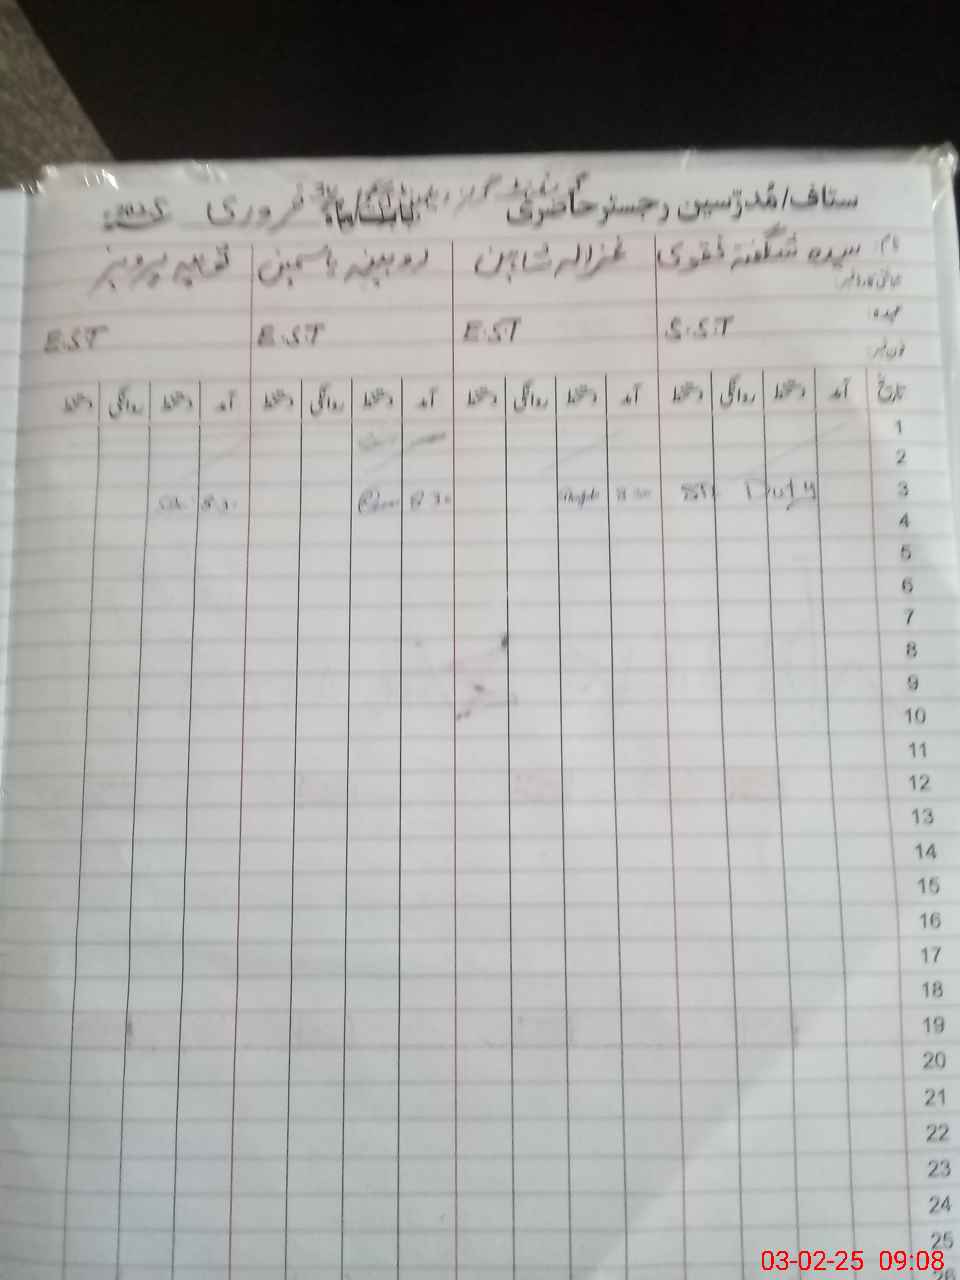 ستاف/مُدرّسین رجسٹر حاضری بابت ماہ فروری
نام: سیدہ شگفتہ نقوی غزالہ شاہین روبینہ یاسمین ثوبیہ پرویز
عہدہ: S.S.T E.S.T E.S.T E.S.T
فون نمبر:
تاریخ آمد دستخط روانگی دستخط آمد دستخط روانگی دستخط آمد دستخط روانگی دستخط آمد دستخط روانگی دستخط
1
2
3 Duty 8:30 8:30 8:30
4
5
6
7
8
9
10
11
12
13
14
15
16
17
18
19
20
21
22
23
24
25
26
03-02-25 09:08